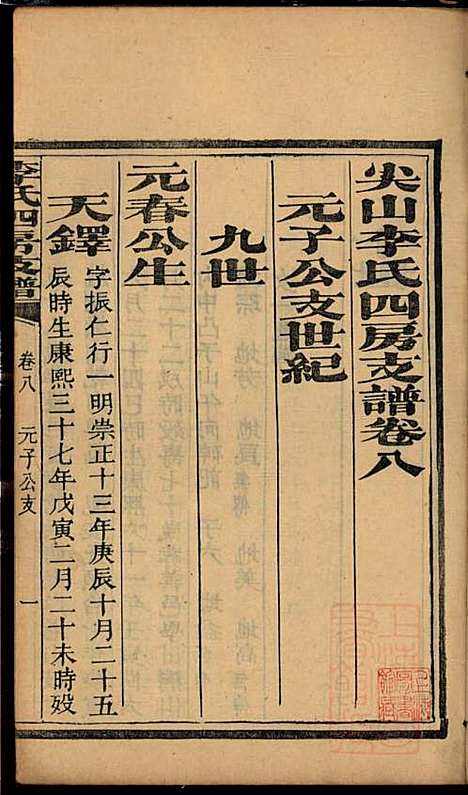 尖山李氏四房支譜卷八
元子公支世紀
九世
元春公生
天鐸
字振仁行一明崇正十三年庚辰十月二十五
辰時生康熙三十七年戊寅二月二十未時歿
李氏四房支譜
卷八
元子公支
一